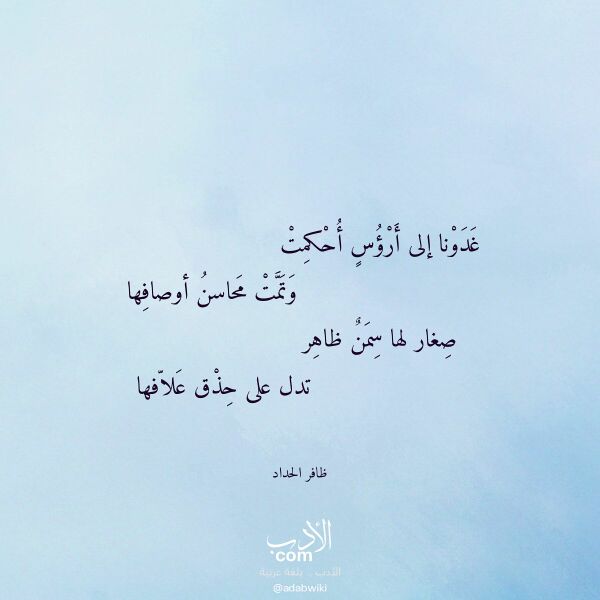 غَدَوْنا إلى أَرْؤُسٍ أُحْكِمتْ
وَتَمَّتْ مَحاسنُ أوصافِها
صِغار لها سِمَنٌ ظاهِر
تدل على حِذْق عَلاّفها
ظافر الحداد
الأدب
com
الأدب .. بلغة عربية
@adabwiki